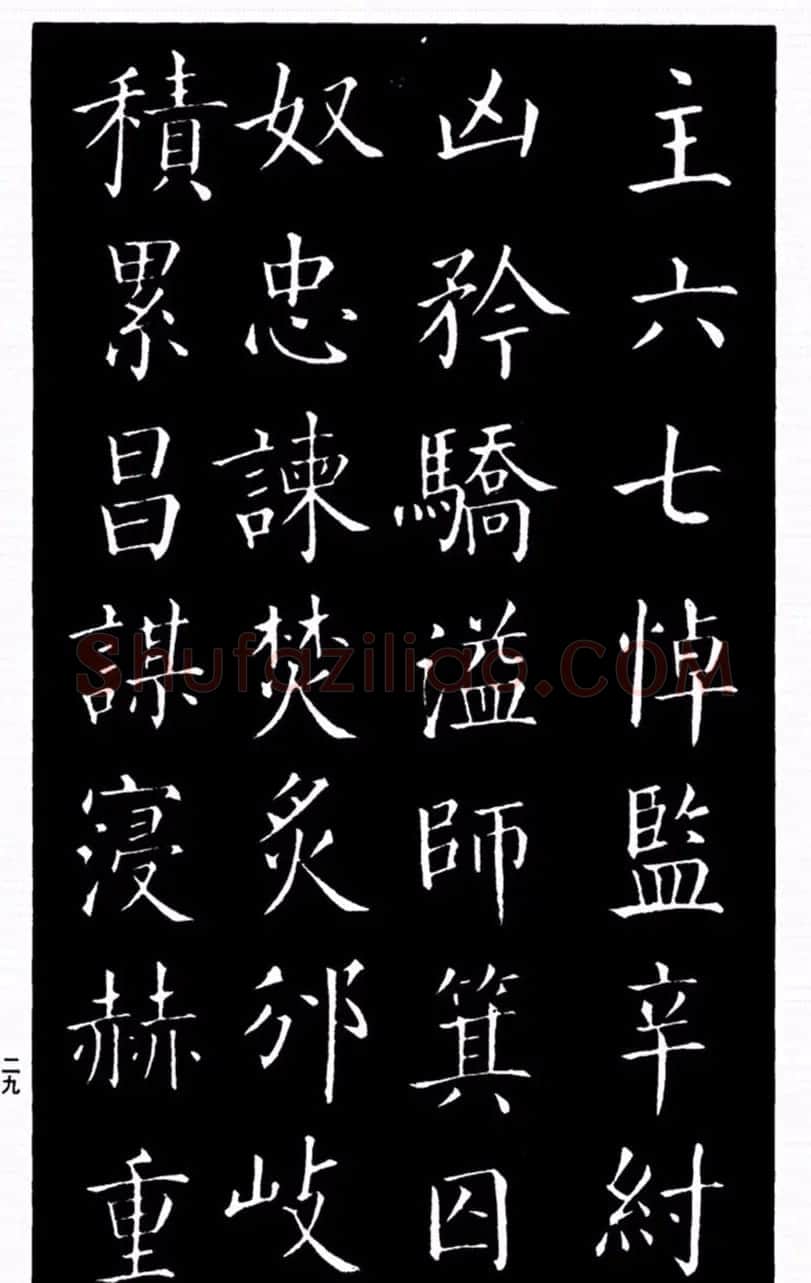 主六七悼監辛紂
凶矜驕溢師箕囚
奴忠諫焚炙邠岐
積累昌謀寖赫重
二九
Shufaziliao.COM